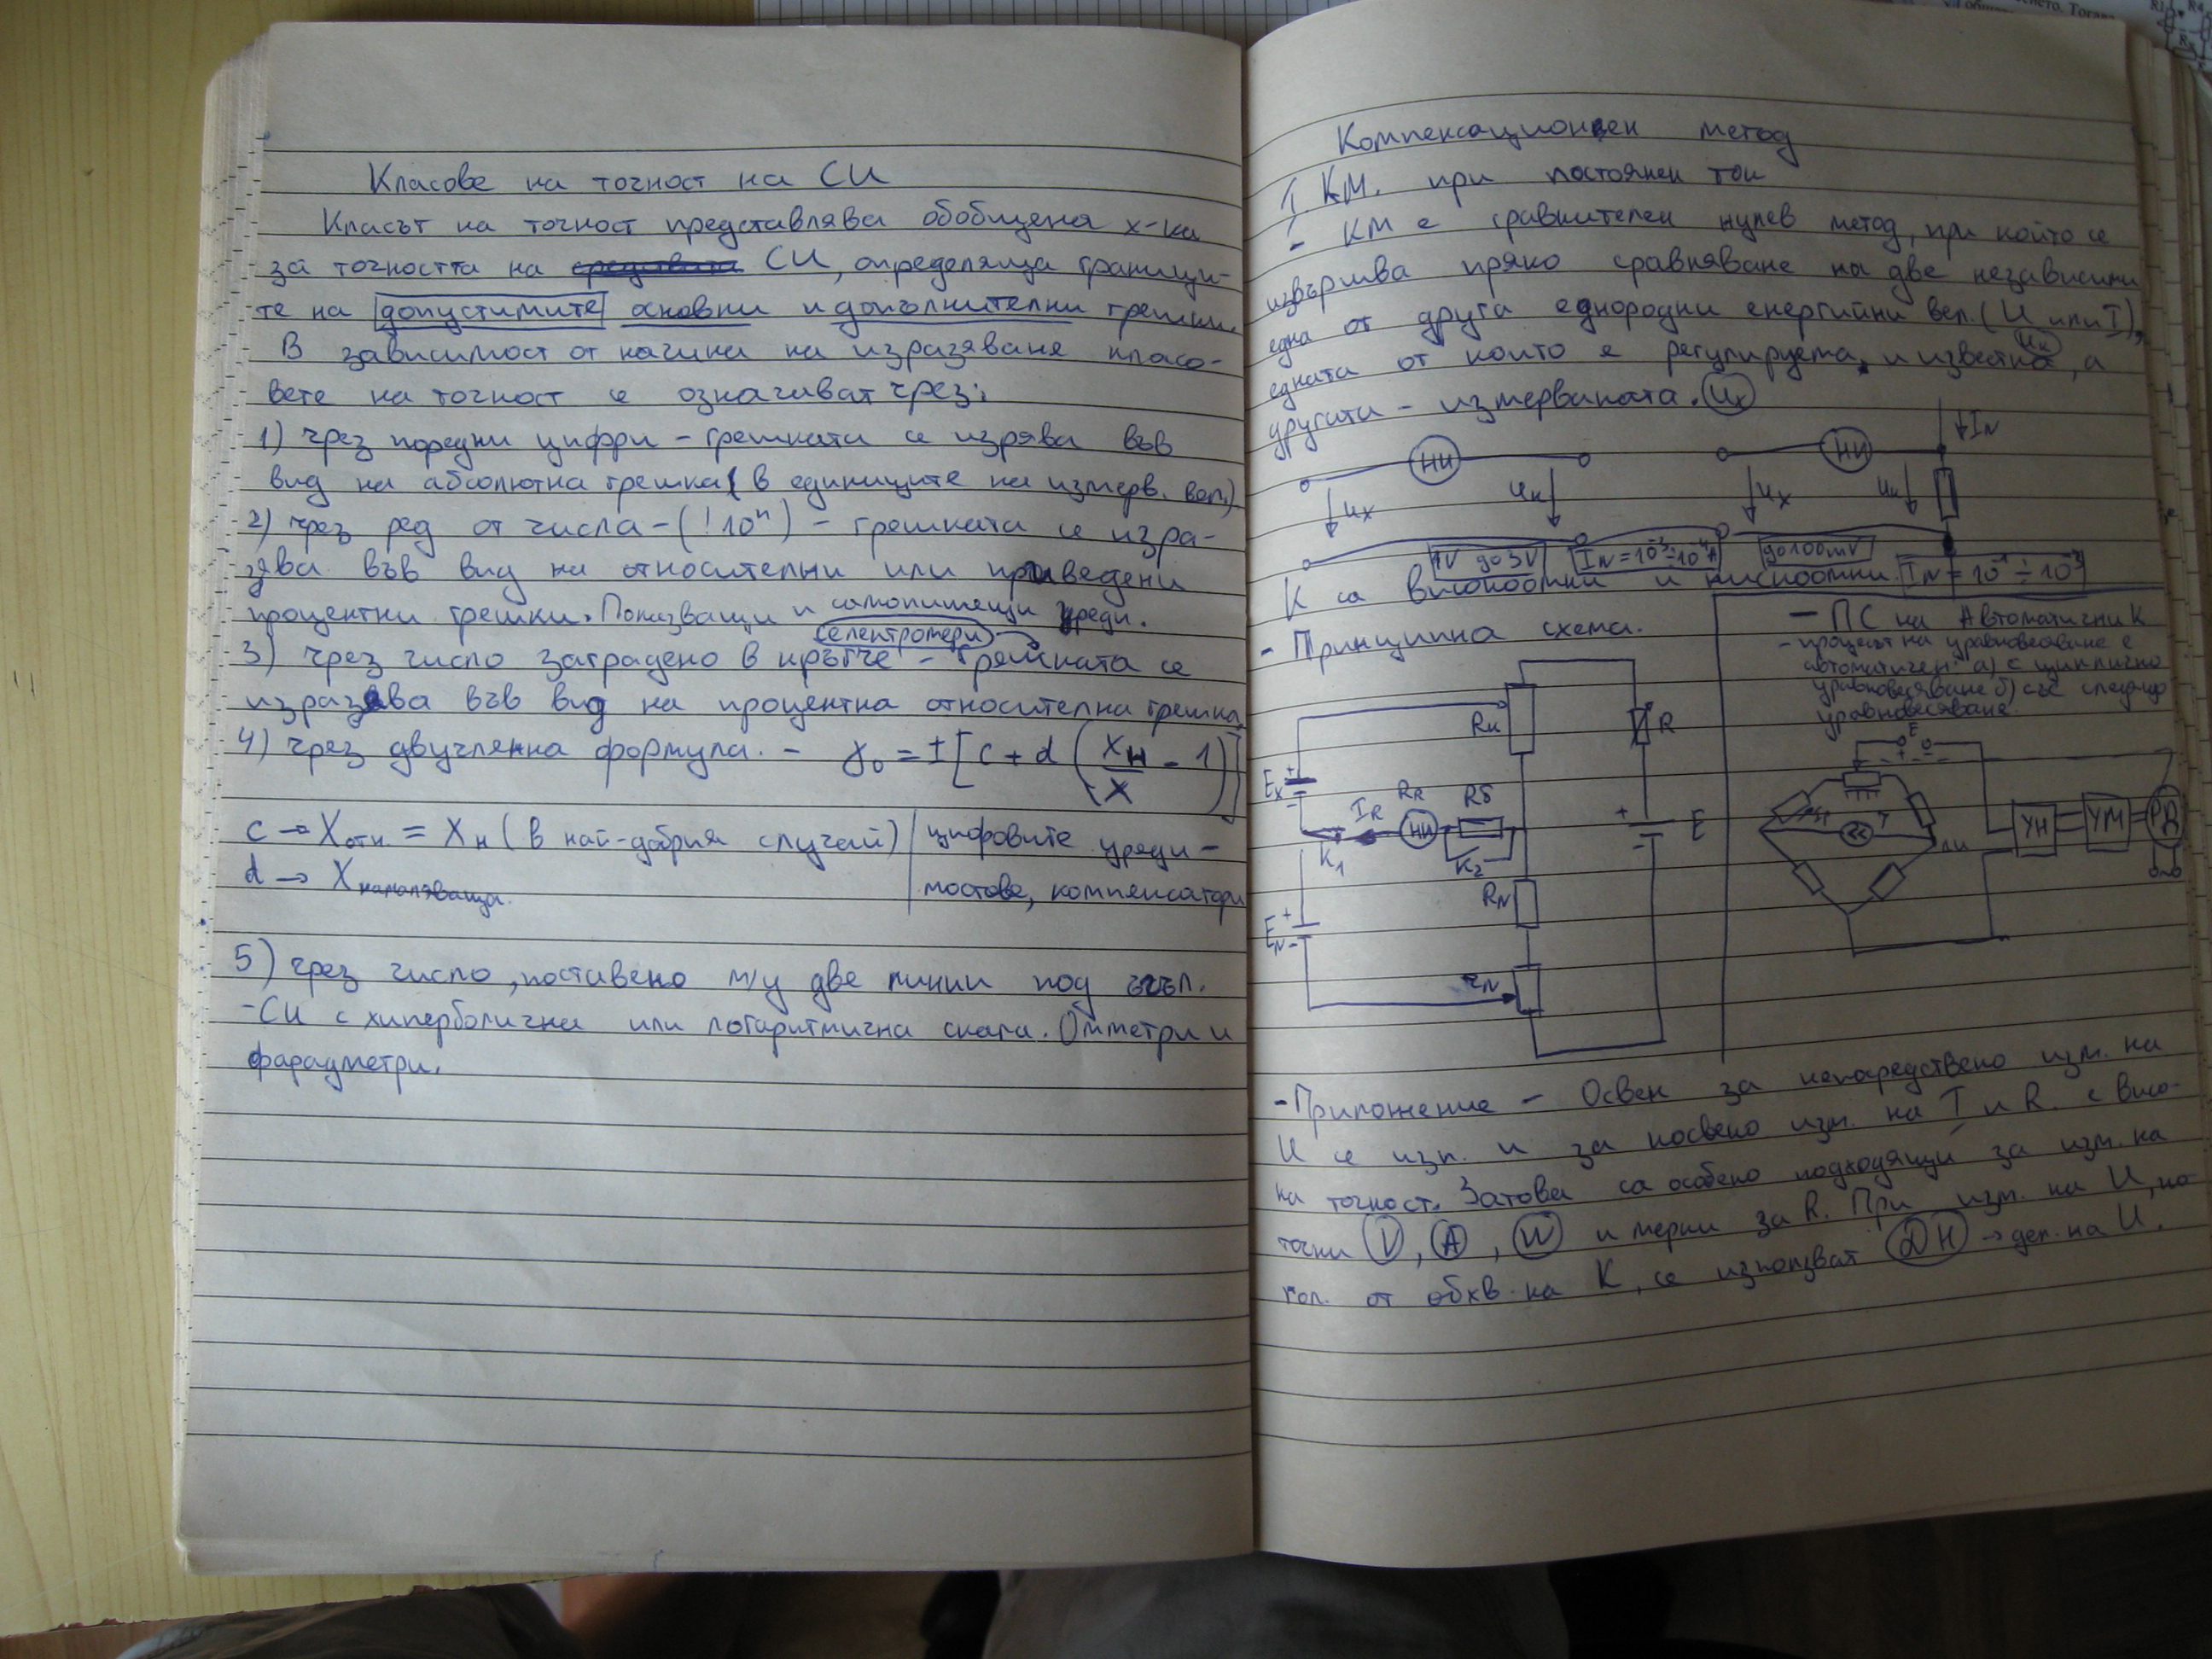 Класове на точност на СИ
Класът на точност представлява обобщена х-ка
за точността на СИ, определяща граници-
те на допустимите основни и допълнителни грешки.
В зависимост от начина на изразяване класо-
вете на точност се означават чрез:
1) чрез поредни цифри - грешката се изрява във
вид на абсолютна грешка ( в единиците на измерв. вел.)
2) чрез ред от числа - (! 10ⁿ) - грешката се изра-
зява във вид на относителни или приведени
процентни грешки. Показващи и самопишещи уреди.
(електромери)
3) чрез число заградено в кръгче - грешката се
изразява във вид на процентна относителна грешка
4) чрез двучленна формула. - γ₀ = ± [c + d (Xн/X - 1)]
c → Xотн. = Xн (в най-добрия случай) | цифровите уреди -
d → Xнамаляваща. | мостове, компенсатори
5) чрез число, поставено м/у две линии под ъгъл.
- СИ с хиперболична или логаритмична скала. Омметри и
фарадметри.
Компенсационен метод
1 КМ. при постоянен ток
- КМ е сравнителен нулев метод, при който се
извършва пряко сравняване на две независими
една от друга еднородни енергийни вел. (U или I),
едната от които е регулируема и известна, а
Uк
другата - измерваната. Ux
НИ НИ IN
Ux Uк Ux Uк
1V до 3V IN = 10⁻³ ÷ 10⁻⁴A до 100mV
К са високоомни и нискоомни. IN = 10⁻¹ ÷ 10⁻³
- Принципна схема.
Rк R
Ex + - IR RR НИ Rб
K1 K2 + - E
RN
EN + -
rN
- ПС на Автоматични К
- процесът на уравновесяване е
автоматичен: а) с циклично
уравновесяване б) със следящо
уравновесяване.
E
+ -
УН УМ РД
- Приложение - Освен за непосредствено изм. на
U се изп. и за косвено изм. на I и R. с висо-
ка точност. Затова са особено подходящи за изм. на
точни V, A, W и мерки за R. При изм. на U, по-
гол. от обхв. на К, се използват ДН → дел. на U.